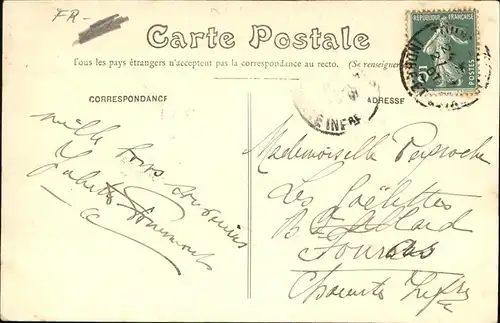 FR-
Carte Postale
Tous les pays étrangers n'acceptent pas la correspondance au recto. (Se renseigner
REPUBLIQUE FRANÇAISE
POSTES
CORRESPONDANCE
ADRESSE
E INF
mille bons souvenirs
Mademoiselle Peyroche
Les Goëlettes
Bd Allard
Fouras
Charente Infre